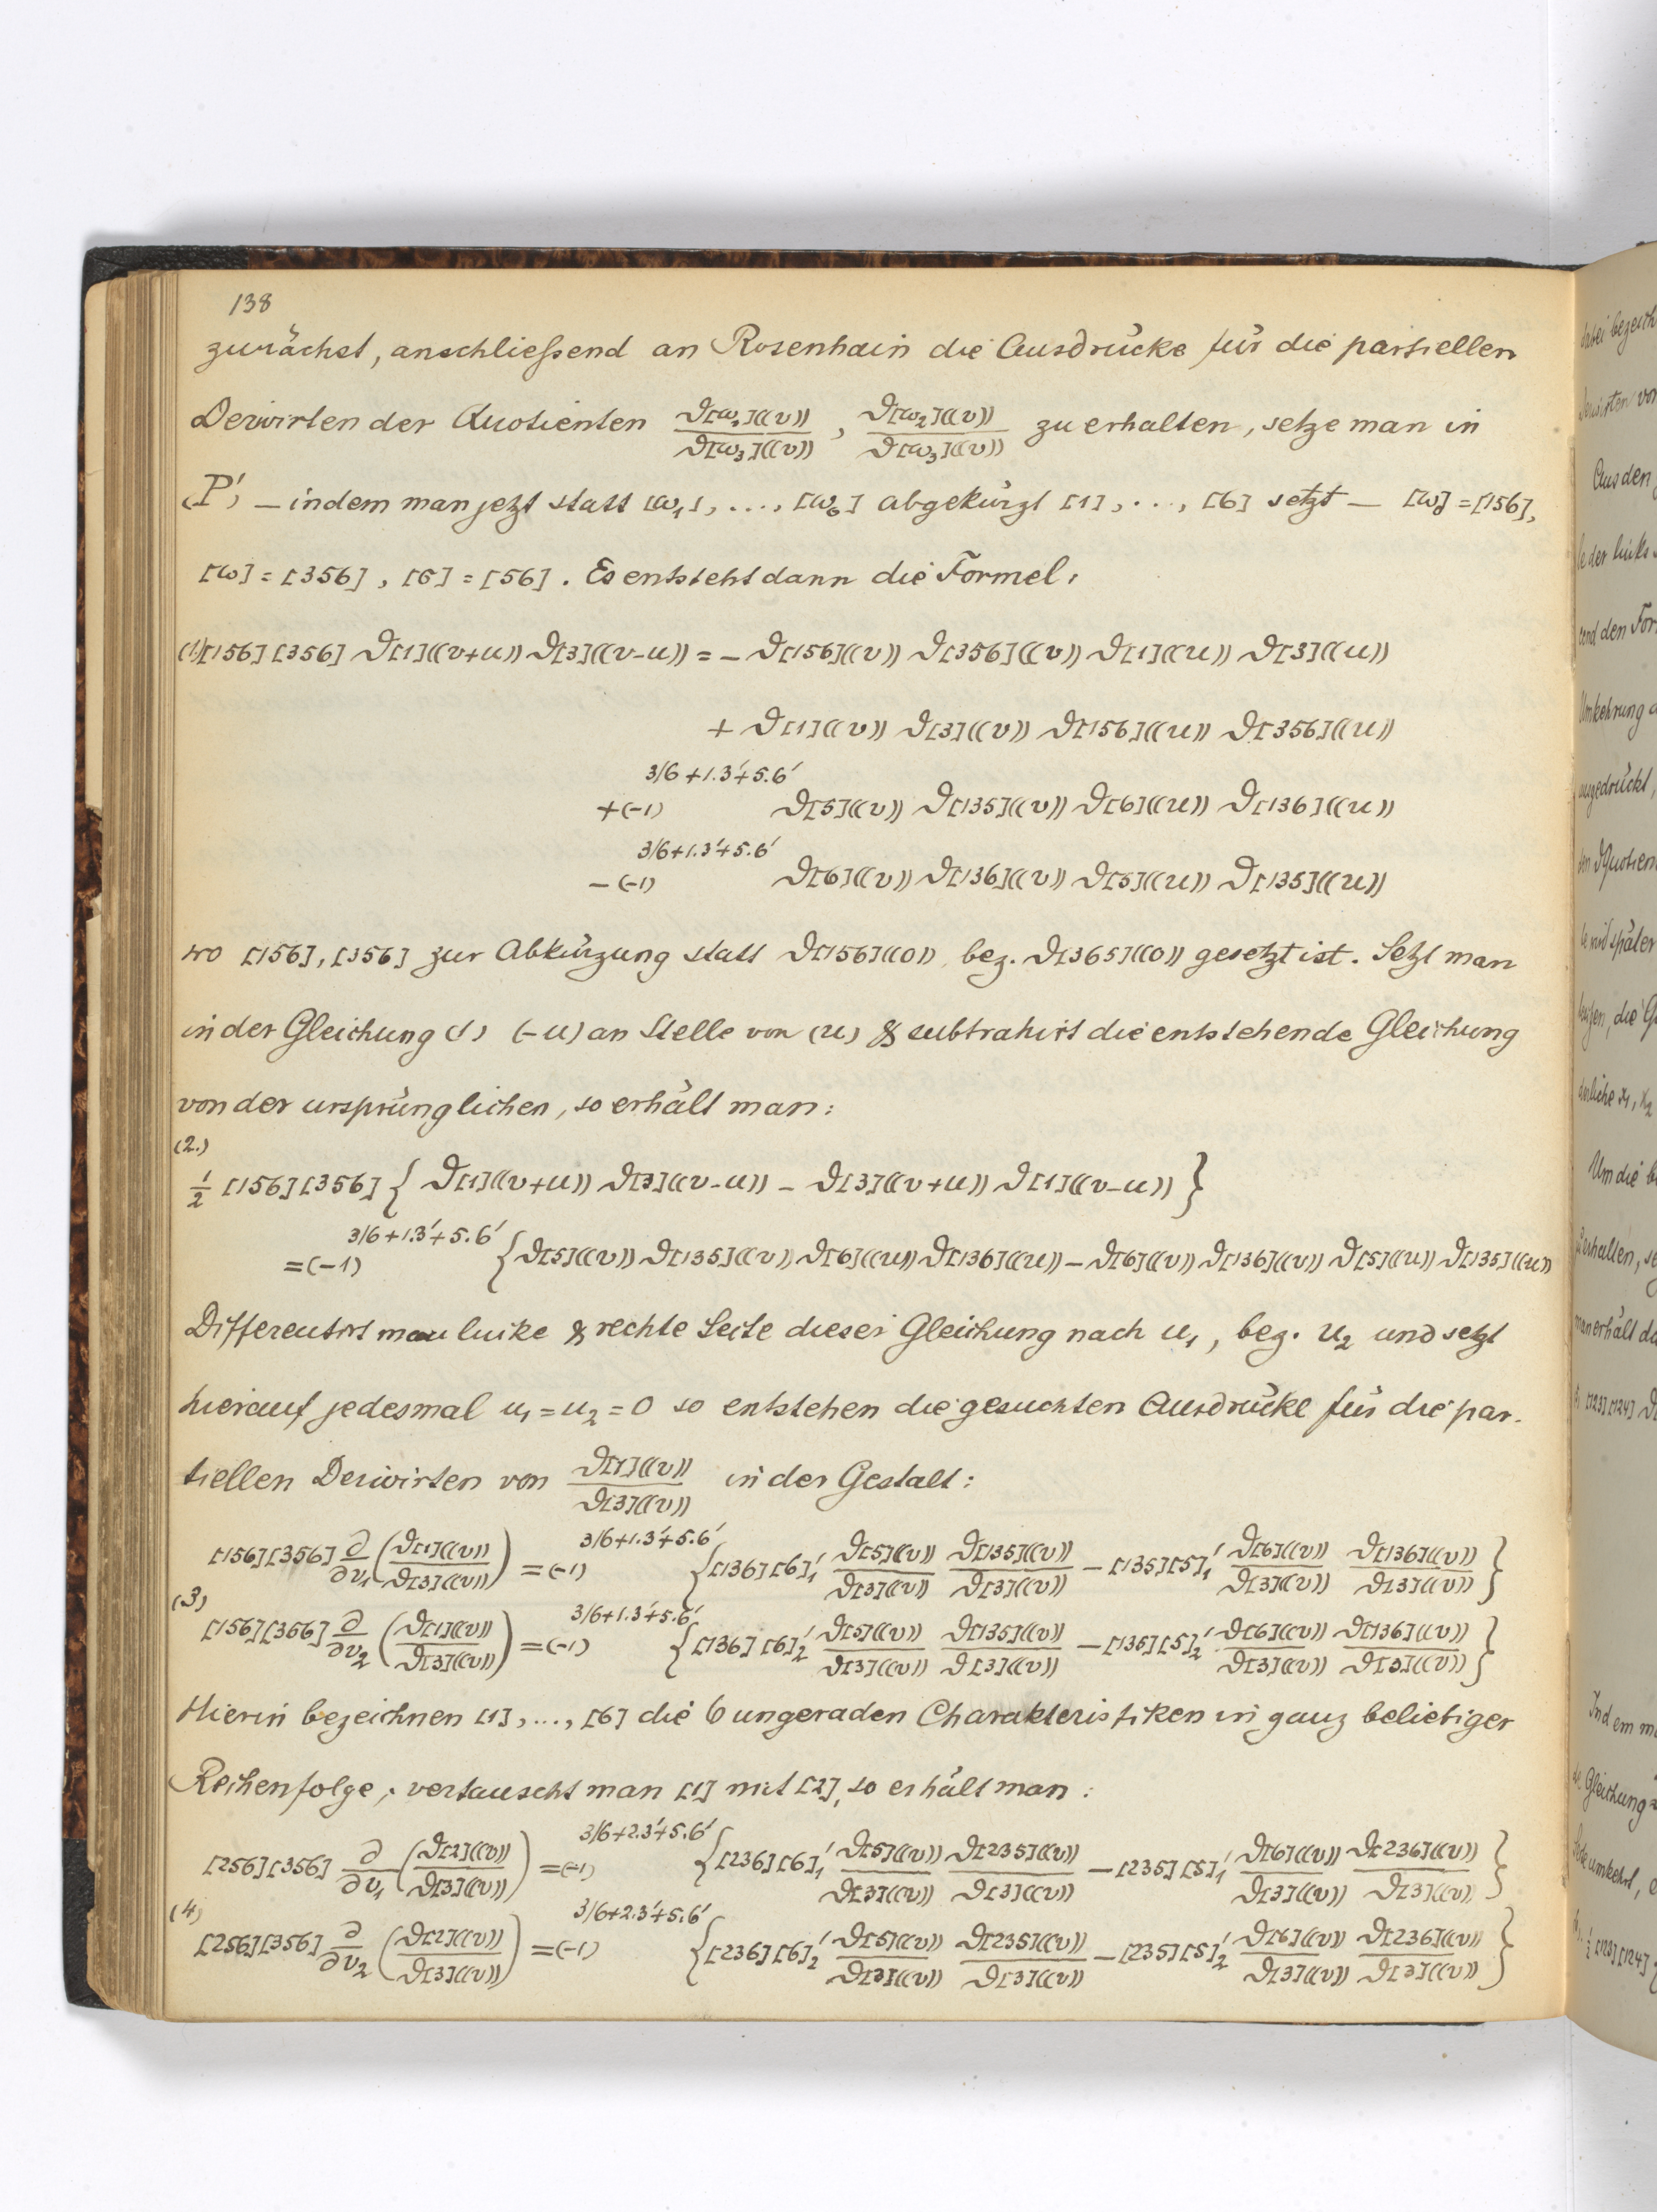 138
zunächst, anschließend an Rosenhain die Ausdrücke für die partiellen
Derivirten der Quotienten ϑ[ω₁]((v))/ϑ[ω₃]((v)), ϑ[ω₂]((v))/ϑ[ω₃]((v)) zu erhalten, setze man in
(P') – indem man jetzt statt [ω₁], ..., [ω₆] abgekürzt [1], ..., [6] setzt – [ω₀] = [156],
[ω] = [356], [σ] = [56]. Es entsteht dann die Formel:
(1) [156][356] ϑ[1]((v+u)) ϑ[3]((v-u)) = - ϑ[156]((v)) ϑ[356]((v)) ϑ[1]((u)) ϑ[3]((u))
+ ϑ[1]((v)) ϑ[3]((v)) ϑ[156]((u)) ϑ[356]((u))
+(-1)^{3/6+1.3'+5.6'} ϑ[5]((v)) ϑ[135]((v)) ϑ[6]((u)) ϑ[136]((u))
-(-1)^{3/6+1.3'+5.6'} ϑ[6]((v)) ϑ[136]((v)) ϑ[5]((u)) ϑ[135]((u))
wo [156], [356] zur Abkürzung statt ϑ[156]((0)), bez. ϑ[365]((0)) gesetzt ist. Setzt man
in der Gleichung (1) (-u) an Stelle von (u) & subtrahirt die entstehende Gleichung
von der ursprünglichen, so erhält man:
(2.)
½ [156][356] { ϑ[1]((v+u)) ϑ[3]((v-u)) - ϑ[3]((v+u)) ϑ[1]((v-u)) }
=(-1)^{3/6+1.3'+5.6'} { ϑ[5]((v)) ϑ[135]((v)) ϑ[6]((u)) ϑ[136]((u)) - ϑ[6]((v)) ϑ[136]((v)) ϑ[5]((u)) ϑ[135]((u))
Differentirt man linke & rechte Seite dieser Gleichung nach u₁, bez. u₂ und setzt
hierauf jedesmal u₁=u₂=0 so entstehen die gesuchten Ausdrücke für die par-
tiellen Derivirten von ϑ[1]((v))/ϑ[3]((v)) in der Gestalt:
[156][356] ∂/∂v₁ (ϑ[1]((v))/ϑ[3]((v))) = (-1)^{3/6+1.3'+5.6'} { [136][6]₁' ϑ[5]((v))/ϑ[3]((v)) ϑ[135]((v))/ϑ[3]((v)) - [135][5]₁' ϑ[6]((v))/ϑ[3]((v)) ϑ[136]((v))/ϑ[3]((v)) }
(3)
[156][356] ∂/∂v₂ (ϑ[1]((v))/ϑ[3]((v))) = (-1)^{3/6+1.3'+5.6'} { [136][6]₂' ϑ[5]((v))/ϑ[3]((v)) ϑ[135]((v))/ϑ[3]((v)) - [135][5]₂' ϑ[6]((v))/ϑ[3]((v)) ϑ[136]((v))/ϑ[3]((v)) }
Hierin bezeichnen [1], ..., [6] die 6 ungeraden Charakteristiken in ganz beliebiger
Reihenfolge; vertauscht man [1] mit [2], so erhält man:
[256][356] ∂/∂v₁ (ϑ[2]((v))/ϑ[3]((v))) = (-1)^{3/6+2.3'+5.6'} { [236][6]₁' ϑ[5]((v))/ϑ[3]((v)) ϑ[235]((v))/ϑ[3]((v)) - [235][5]₁' ϑ[6]((v))/ϑ[3]((v)) ϑ[236]((v))/ϑ[3]((v)) }
(4)
[256][356] ∂/∂v₂ (ϑ[2]((v))/ϑ[3]((v))) = (-1)^{3/6+2.3'+5.6'} { [236][6]₂' ϑ[5]((v))/ϑ[3]((v)) ϑ[235]((v))/ϑ[3]((v)) - [235][5]₂' ϑ[6]((v))/ϑ[3]((v)) ϑ[236]((v))/ϑ[3]((v)) }